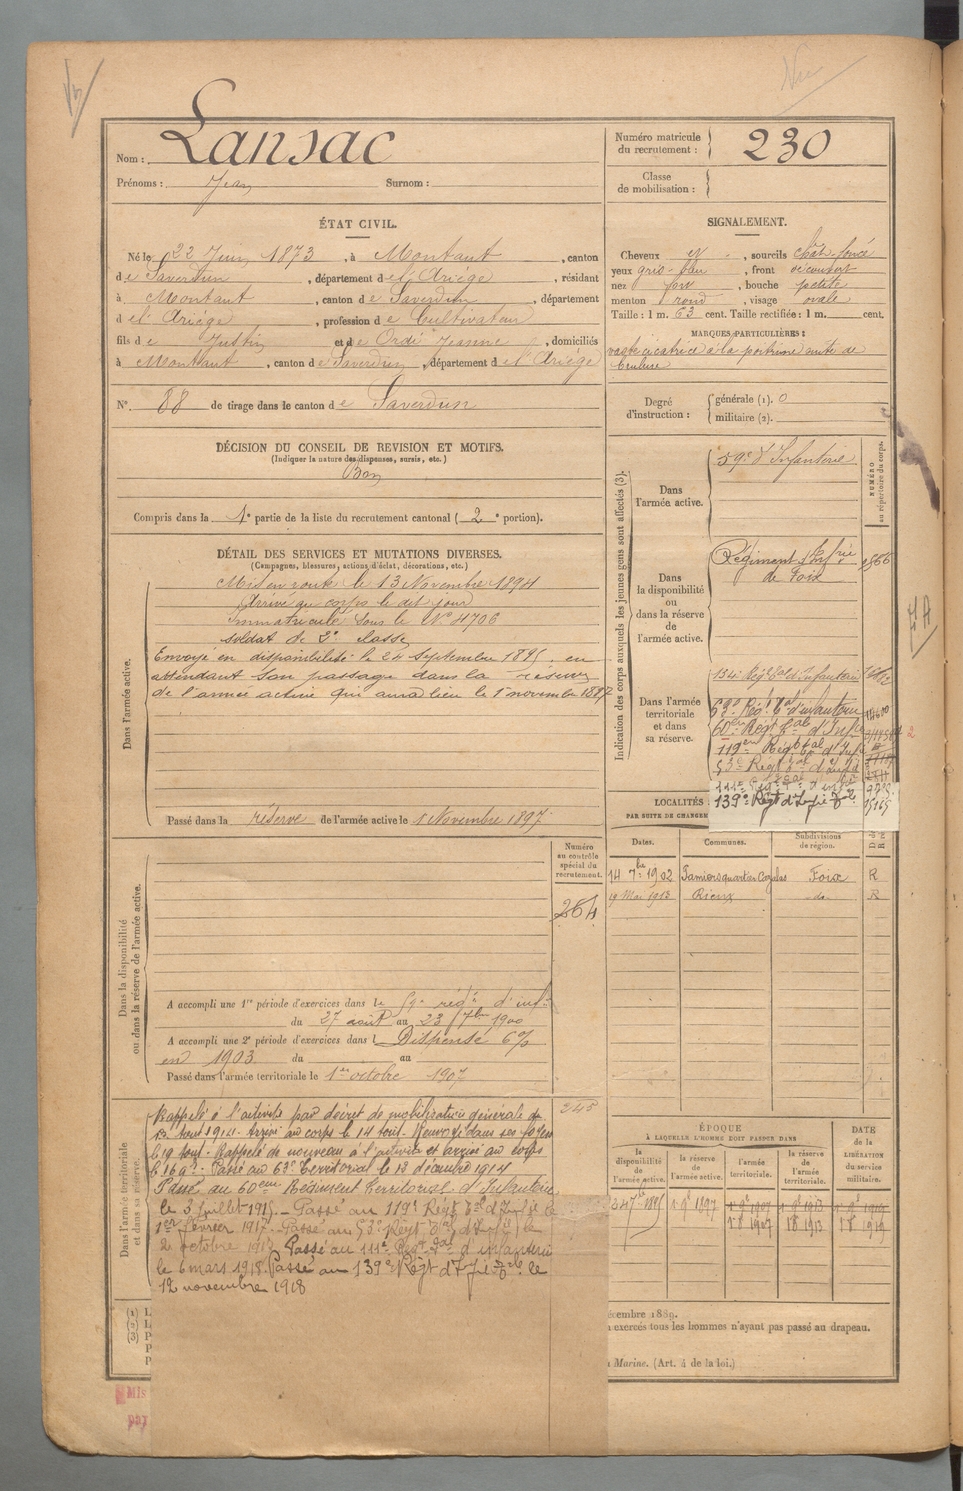 Nom : Lansac
Prénoms : Jean Surnom :
Numéro matricule du recrutement : 230
Classe de mobilisation :
ÉTAT CIVIL.
Né le 22 Juin 1873, à Montaut, canton
de Saverdun, département de l'Ariège, résidant
à Montaut, canton de Saverdun, département
d el' Ariège, profession de Cultivateur
fils de Justin et de Ordé Jeanne, domiciliés
à Montaut, canton de Saverdun, département de l'Ariège
N° 88 de tirage dans le canton de Saverdun
SIGNALEMENT.
Cheveux N, sourcils chât-foncé
yeux gris-bleu, front découvert
nez, bouche petite
menton rond, visage ovale
Taille : 1 m. 63 cent. Taille rectifiée : 1 m. cent.
MARQUES PARTICULIÈRES :
vaste cicatrice à la poitrine suite de
brulure
Degré d'instruction : générale (1). 0
militaire (2).
DÉCISION DU CONSEIL DE REVISION ET MOTIFS.
(Indiquer la nature des dispenses, sursis, etc.)
Bon
Compris dans la 1e partie de la liste du recrutement cantonal ( 2e portion).
DÉTAIL DES SERVICES ET MUTATIONS DIVERSES.
(Campagnes, blessures, actions d'éclat, décorations, etc.)
Dans l'armée active.
Mis en route le 13 Novembre 1894
Arrivé au corps le dit jour
Immatriculé sous le N° 4706
soldat de 2e classe
Envoyé en disponibilité le 24 Septembre 1895, en
attendant son passage dans la réserve
de l'armée active qui aura lieu le 1er novembre 1897
Passé dans la réserve de l'armée active le 1 Novembre 1897
Indication des corps auxquels les jeunes gens sont affectés (3).
NUMÉRO au répertoire du corps.
Dans l'armée active.
59e d'Infanterie
Dans la disponibilité ou dans la réserve de l'armée active.
Régiment d'Infrie
de Foix
Dans l'armée territoriale et dans sa réserve.
134e Régt tal d'Infanterie
63e Régt tal d'infanterie
60em Régt tal d'Infie
119em Régt tal d'Infie
53e Régt tal d'Infie
111e Régt tal d'infie
139e Régt d'Infie tale 15165
LOCALITÉS
PAR SUITE DE CHANGEM
Dates. Communes. Subdivisions de région.
14 7bre 1902 Pamiers quartier Foix R
19 Mai 1913 Rieux do R
Dans la disponibilité ou dans la réserve de l'armée active.
Numéro au contrôle spécial du recrutement.
264
A accompli une 1re période d'exercices dans le 59e régt d'infie
du 27 août au 23 7bre 1900
A accompli une 2e période d'exercices dans l Dispensé 6%
en 1903 du au
Passé dans l'armée territoriale le 1er octobre 1907
Dans l'armée territoriale et dans sa réserve.
Rappelé à l'activité par décret de mobilisation générale du
Aout 1914. Arrivé au corps le 14 aout. Renvoyé dans ses foyers
le 19 aout. Rappelé de nouveau à l'activité et arrivé au corps
le 16 9bre. Passé au 63e territorial le 13 décembre 1914
Passé au 60eme Régiment territorial d'Infanterie
le 5 juillet 1915. Passé au 119e Régt tal d'Infie le
1er février 1917. Passé au 53e Régt tal d'Infie le
2 octobre 1917. Passé au 111e Régt tal d'infanterie
le 6 mars 1918. Passé au 139e Régt d'Infie tle le
12 novembre 1918
ÉPOQUE
à LAQUELLE L'HOMME DOIT PASSER DANS
la disponibilité de l'armée active. la réserve de l'armée active. l'armée territoriale. la réserve de l'armée territoriale.
DATE de la LIBÉRATION du service militaire.
1 9e 1897
18 1907 18 1913 18 1919
écembre 1889.
exercés tous les hommes n'ayant pas passé au drapeau.
Marine. (Art. 4 de la loi.)
(1) L
(2) L
(3) P
Mis
par